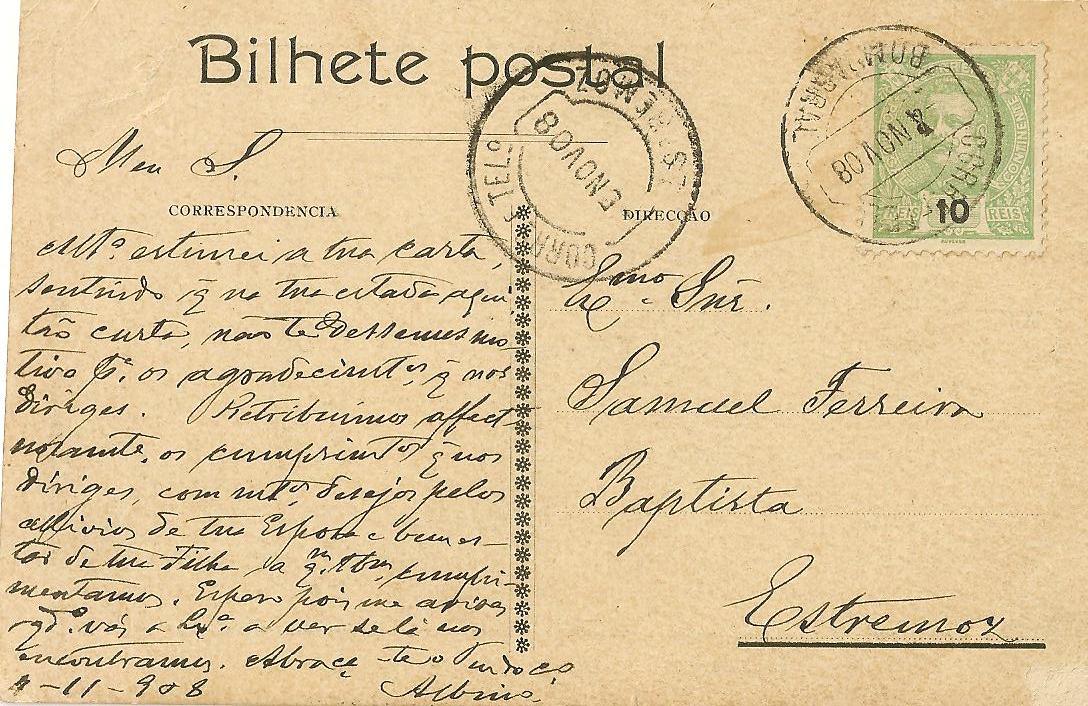 Bilhete postal
Meu S.
CORRESPONDENCIA
Mtº estimei a tua carta,
sentindo q̃ na tua estada aqui,
tão curta, não te dessemos mo-
tivo pª. os agradecimtos, q̃ nos
diriges. Retribuimos affect-
uosamte. os cumprimtos q̃ nos
diriges, com mtos. desejos pelos
allivios de tua Esposa e bem es-
tar de tua Filha, a qm. tbm. cumpri-
mentamos. Espero pois me avises
qdº. vás a Lxª. a ver se lá nos
encontramos. Abraça-te o
4-11-908
Albino
DIRECÇÃO
Exmo. Snr.
Samuel Ferreira
Baptista
Estremoz
CORRº E TELº
ESTREMOZ
5 NOV 08
CORRº E TELº
BOMBARRAL
4 NOV 08
REIS 10 REIS